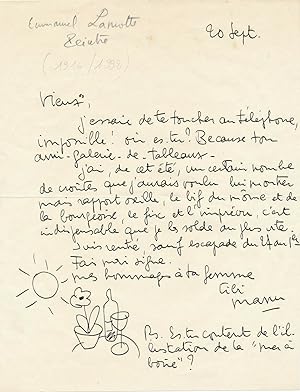 Emmanuel Lamotte
Peintre
20 Sept.
Vieux,
j'essaie de te toucher au téléphone,
impossible! où es-tu? Because ton
ami-galerie-de-tableaux-
j'ai, de cet été, un certain nombre
de croûtes que j'aurais voulu lui montrer
mais rapport oseille, le bif du môme et de
la bourgeoise, le fixe et l'imprévu, c'est
indispensable que je les solde au plus vite.
Suis rentré, sauf escapade du 27 au 1er
Fais-moi signe.
mes hommages à ta femme
tibi
manu
Ps. Es-tu content de l'il-
lustration de la "mer à
boire"?